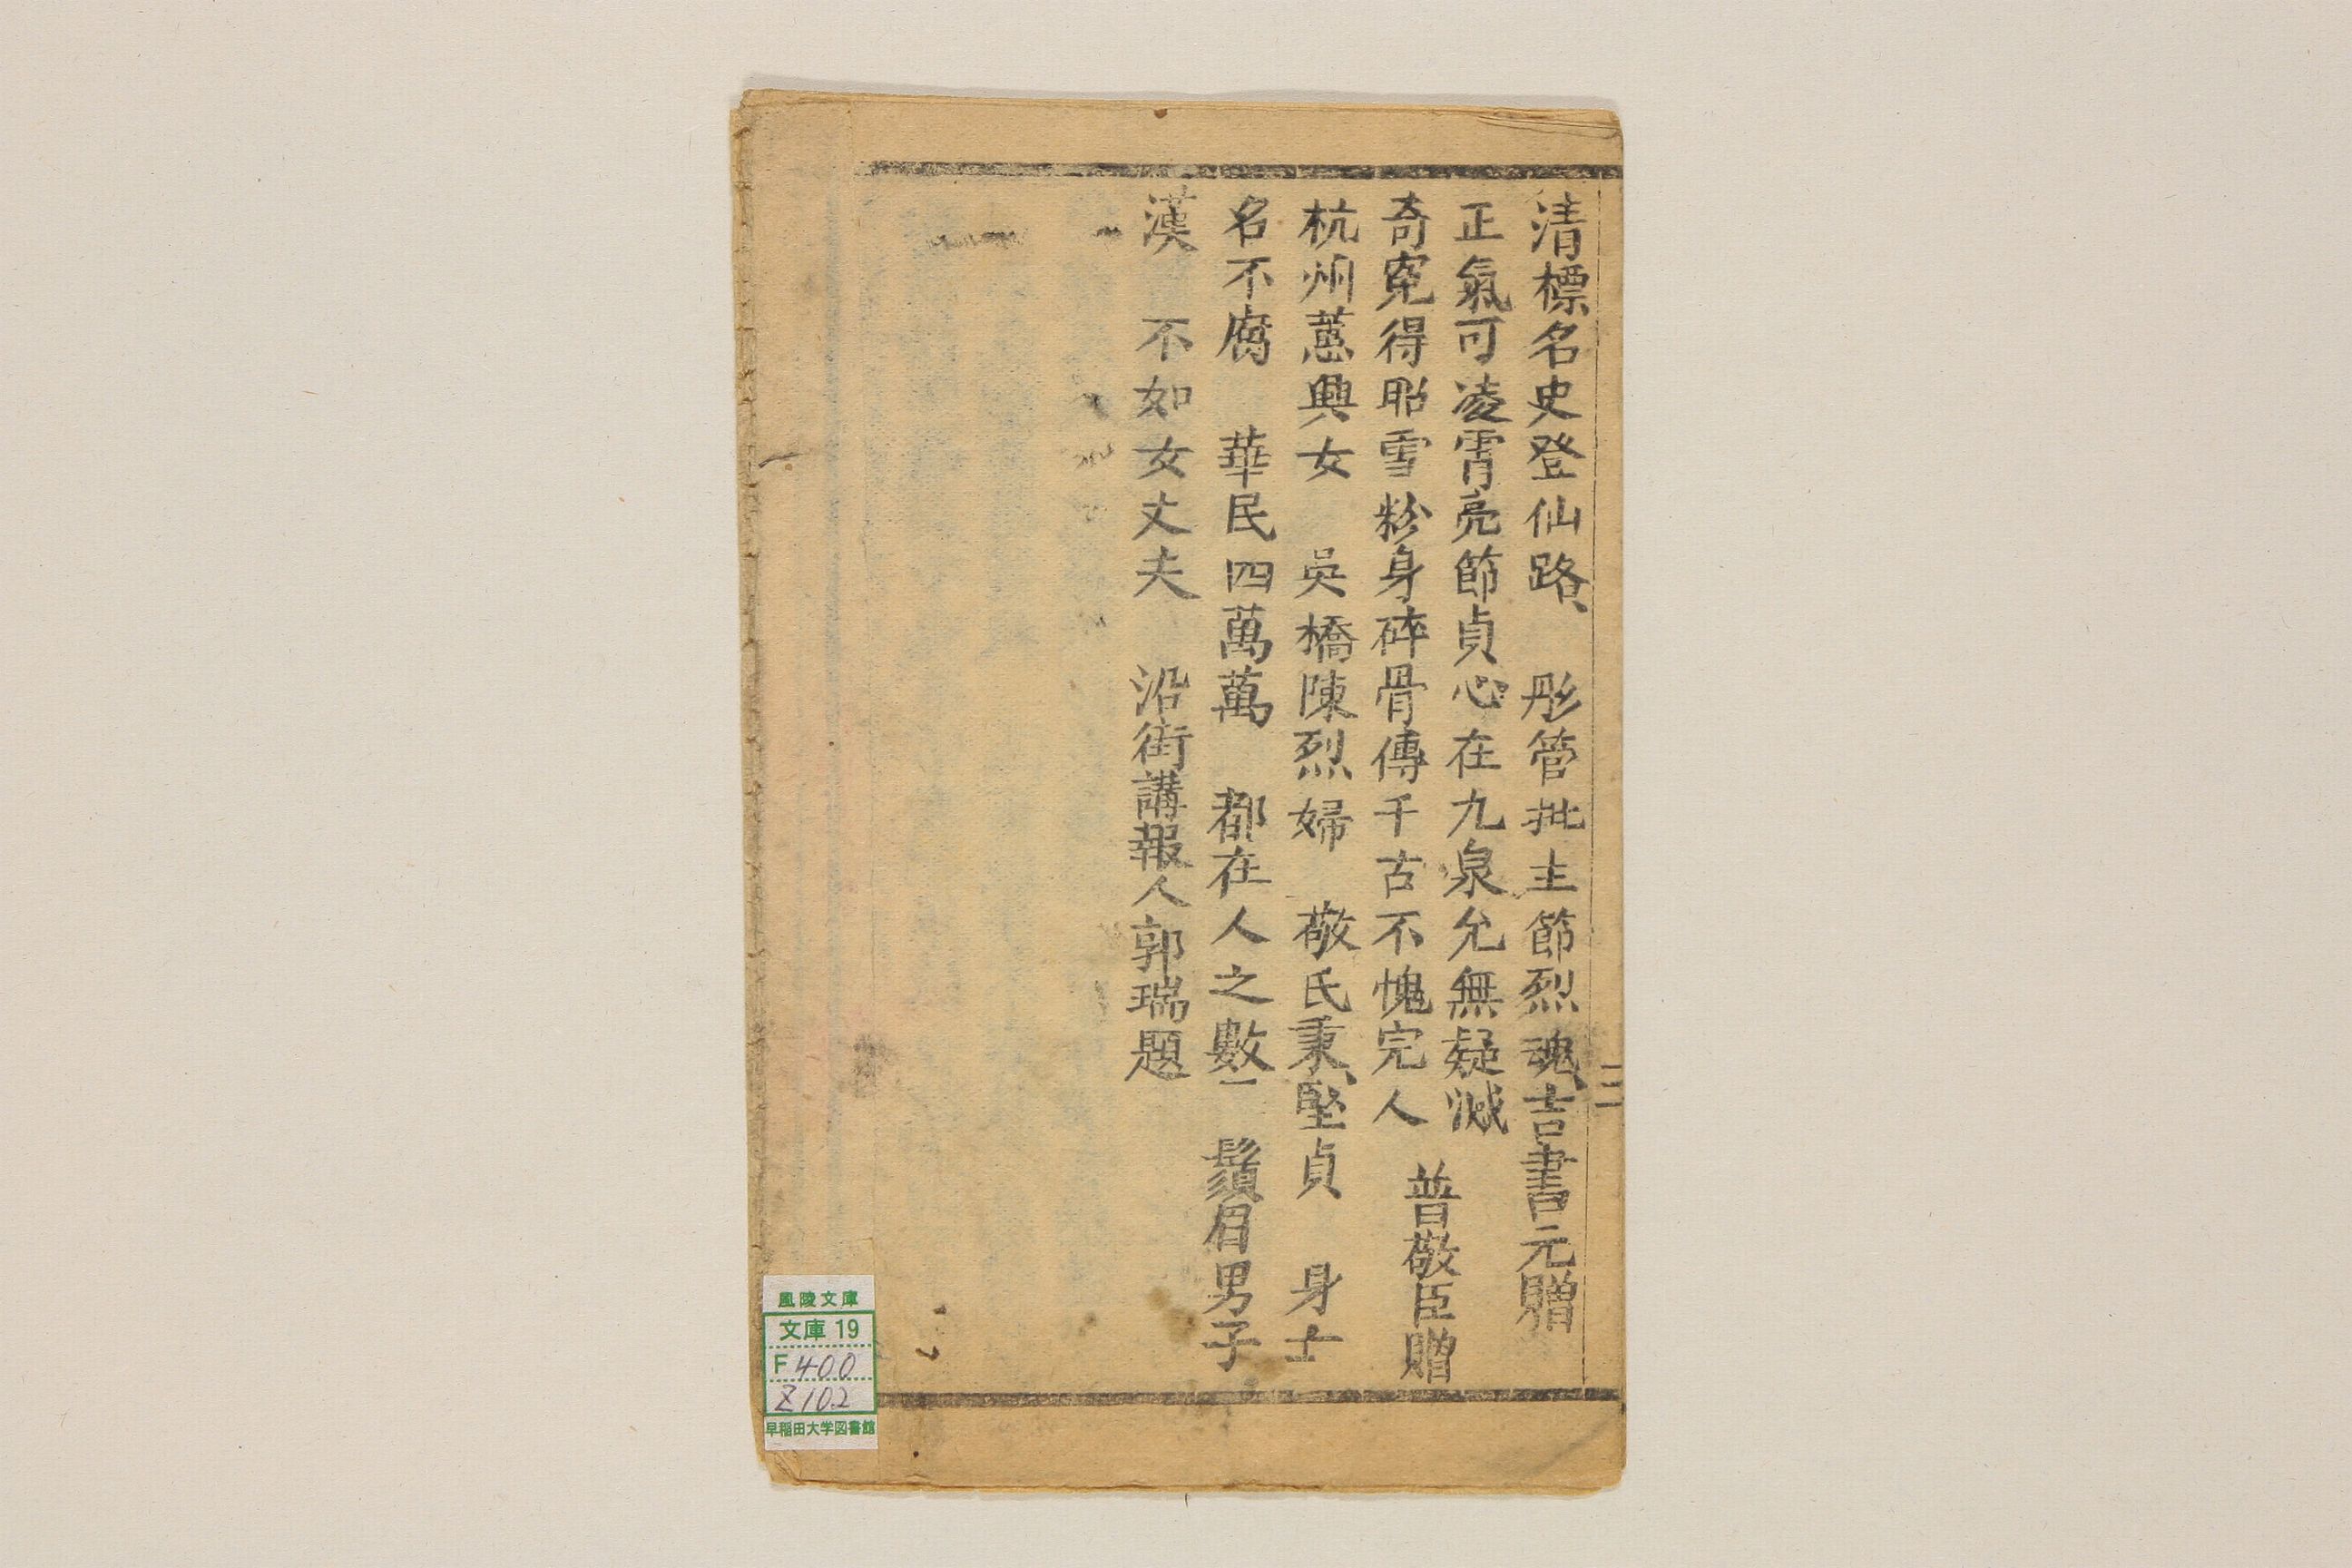 清標名史登仙路、　彤管批主節烈魂、吉書元贈
正氣可凌霄亮節貞心在九泉允無疑滅
普敬臣贈
奇寃得昭雪粉身碎骨傳千古不愧完人
杭州蕙興女　吳橋陳烈婦　敬氏秉、堅貞　身士
名不腐　華民四萬萬　都在人之數　鬚眉男子
漢　不如女丈夫　沿街講報人郭瑞題
風陵文庫
文庫 19
F 400
Z 102
早稲田大学図書館